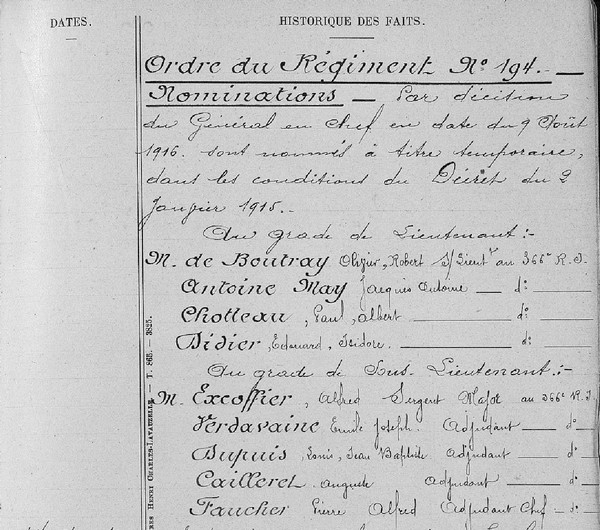 DATES.
HISTORIQUE DES FAITS.
Ordre du Régiment No 194. —
Nominations — Par décision
du Général en Chef en date du 9 Août
1916. sont nommés à titre temporaire,
dans les conditions du Décret du 2
Janvier 1915.-
Au grade de Lieutenant :-
M. de Boutray Olivier, Robert S/Lieutt au 366e R.I.
Antoine May Jacques Antoine — do: —
Chotteau, Paul, Albert — do: —
Didier, Edouard, Isidore. — do: —
Au grade de Sous-Lieutenant :-
M. Excoffier, Alfred Sergent Major au 366e R.I.
Verdavaine Emile Joseph. Adjudant — do —
Dupuis, Louis, Jean Baptiste Adjudant — do —
Cailleret Auguste Adjudant — do —
Faucher Pierre Alfred Adjudant Chef — do —
HENRI CHARLES-LAVAUZELLE. — T. 865. — 3825.